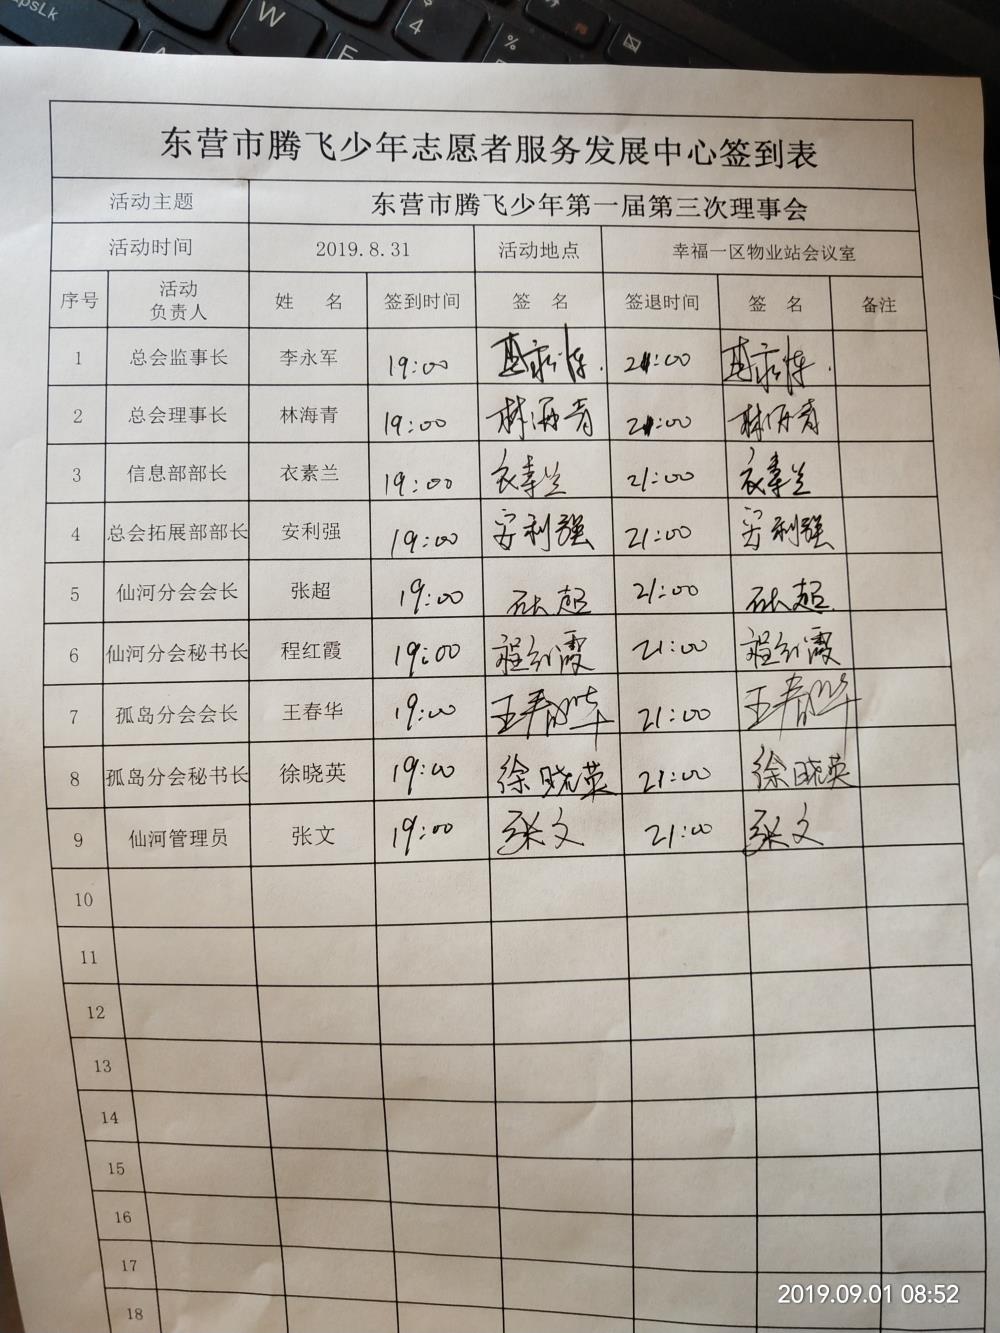 东营市腾飞少年志愿者服务发展中心签到表
活动主题 东营市腾飞少年第一届第三次理事会
活动时间 2019.8.31 活动地点 幸福一区物业站会议室
序号 活动负责人 姓 名 签到时间 签 名 签退时间 签 名 备注
1 总会监事长 李永军 19:00 21:00
2 总会理事长 林海青 19:00 林海青 21:00 林海青
3 信息部部长 衣素兰 19:00 衣素兰 21:00 衣素兰
4 总会拓展部部长 安利强 19:00 安利强 21:00 安利强
5 仙河分会会长 张超 19:00 张超 21:00 张超
6 仙河分会秘书长 程红霞 19:00 程红霞 21:00 程红霞
7 孤岛分会会长 王春华 19:00 王春华 21:00 王春华
8 孤岛分会秘书长 徐晓英 19:00 徐晓英 21:00 徐晓英
9 仙河管理员 张文 19:00 张文 21:00 张文
10
11
12
13
14
15
16
17
18
2019.09.01 08:52
W
E
4
%